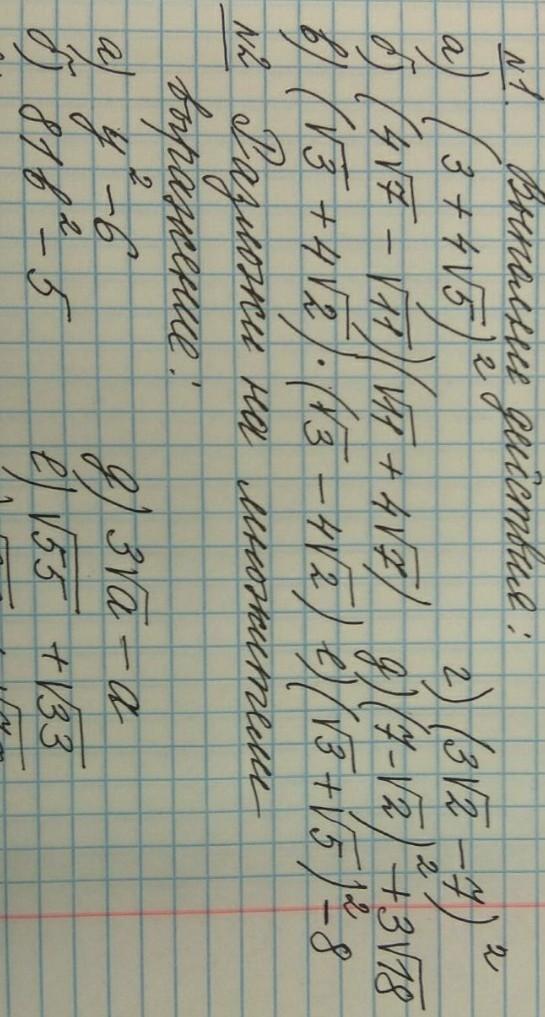 №1. Выполние действия:
а) (3 + 4√5)² г) (3√2 - 7)²
б) (4√7 - √11)(√11 + 4√7) д) (7 - √2)² + 3√18
в) (√3 + 4√2) · (√3 - 4√2) е) (√3 + √5)² - 8
№2 Разложи на множители
выражение:
а) y² - 6 д) 3√a - a
б) 81b² - 5 е) √55 + √33